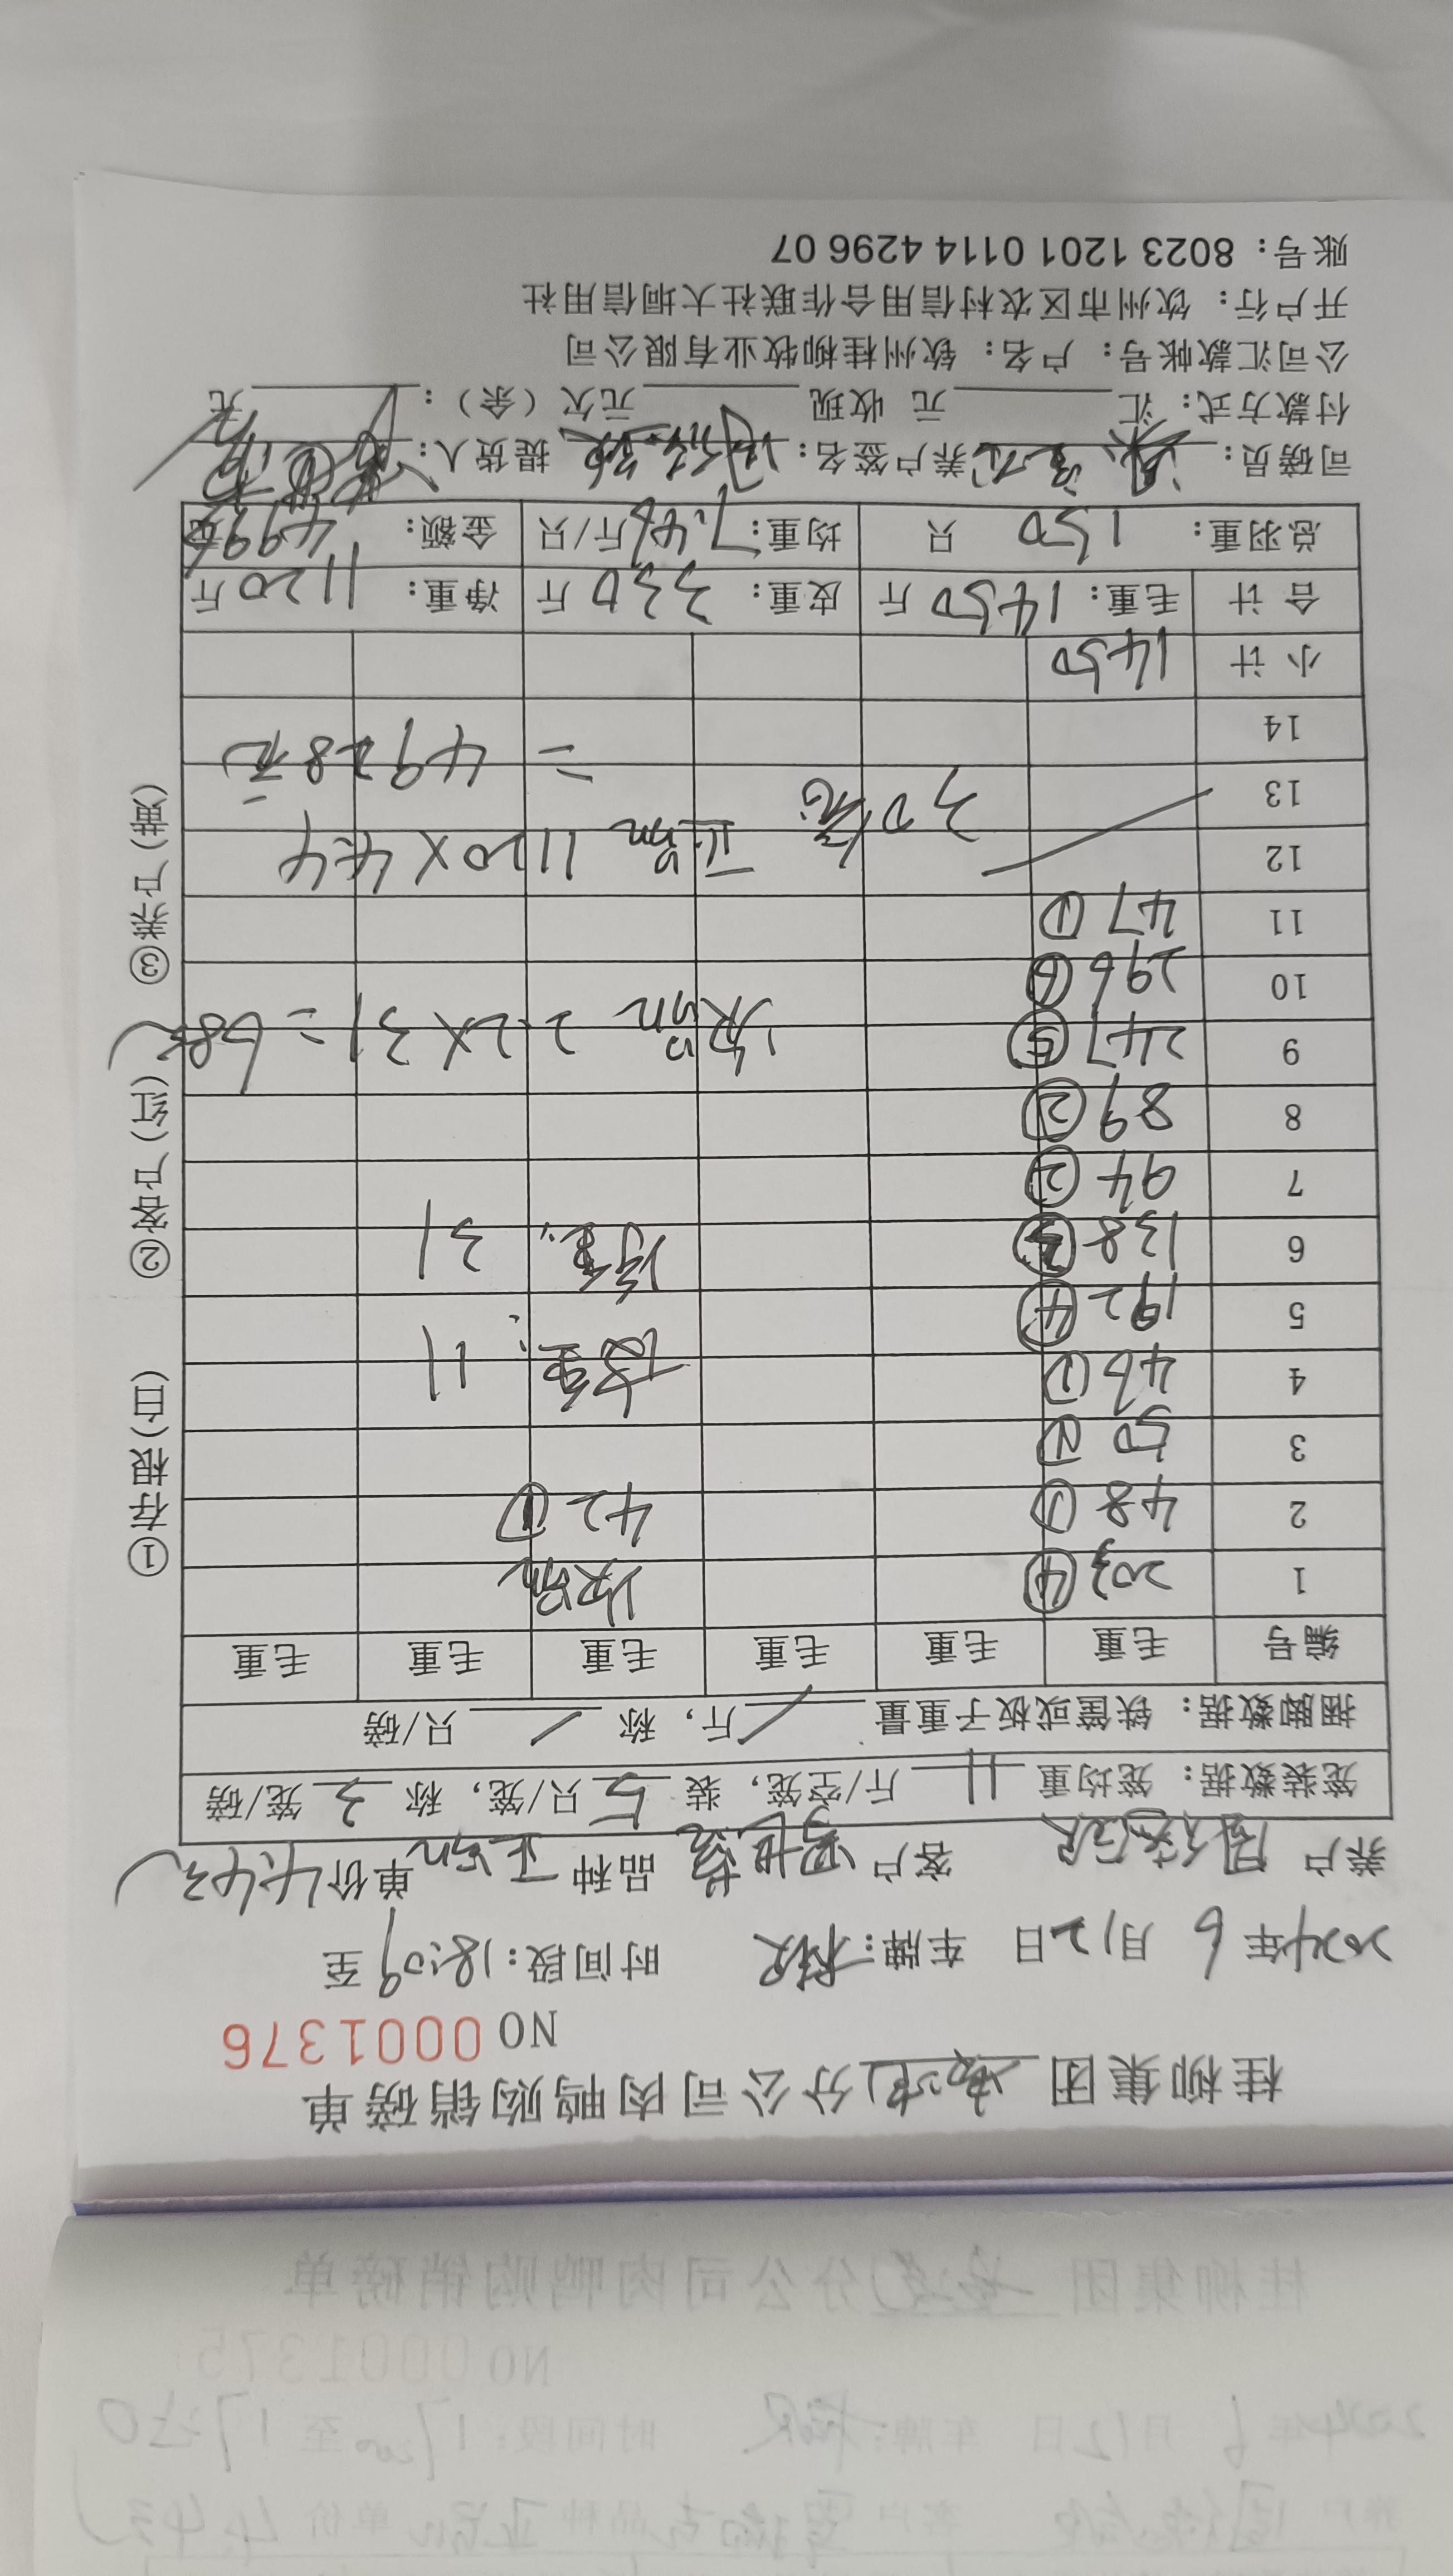 桂柳集团 分公司肉鸭购销磅单
NO 0001376
2024年 6 月 12 日 车牌: 时间段:18:09 至
养户 客户 品种 正品 单价 4.4元
笼装数据: 笼均重 11 斤/空笼, 装 5 只/笼, 称 3 笼/磅
捆脚数据: 铁筐或板子重量 / 斤, 称 / 只/磅
编号 毛重 毛重 毛重 毛重 毛重 毛重
1 203 ④ 次品
2 48 ① 42 ①
3 50 ①
4 46 ① 皮重: 11
5 192 ④
6 138 ③ 净重: 31
7 94 ②
8 89 ②
9 247 ⑤ 次品 2.2×31=68元
10 296 ⑥
11 47 ①
12 正品 1120×4.4
13 30笼
14 =4928元
小计 1450
合计 毛重: 1450 斤 皮重: 330 斤 净重: 1120 斤
总羽重: 150 只 均重: 7.46 斤/只 金额: 4996 元
司磅员: 养户签名: 提货人:
付款方式: 汇 元 收现 元欠（余）: 元
公司汇款帐号: 户名: 钦州桂柳牧业有限公司
开户行: 钦州市区农村信用合作联社大垌信用社
账号: 8023 1201 0114 4296 07
①存根（白） ②客户（红） ③养户（黄）
桂柳集团 分公司肉鸭购销磅单
NO 0001375
2024年 6 月 12 日 车牌: 时间段: 17:00 至 17:20
养户 客户 品种 正品 单价 4.4元